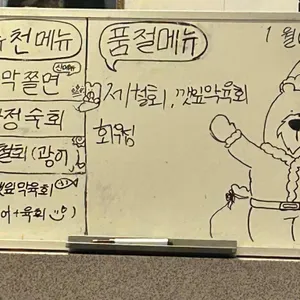 추천메뉴
신메뉴
막쫄면
정숙회
철회(광어
깻잎막육회
어+육회
품절메뉴
제철회, 깻잎막육회
회무침
1월